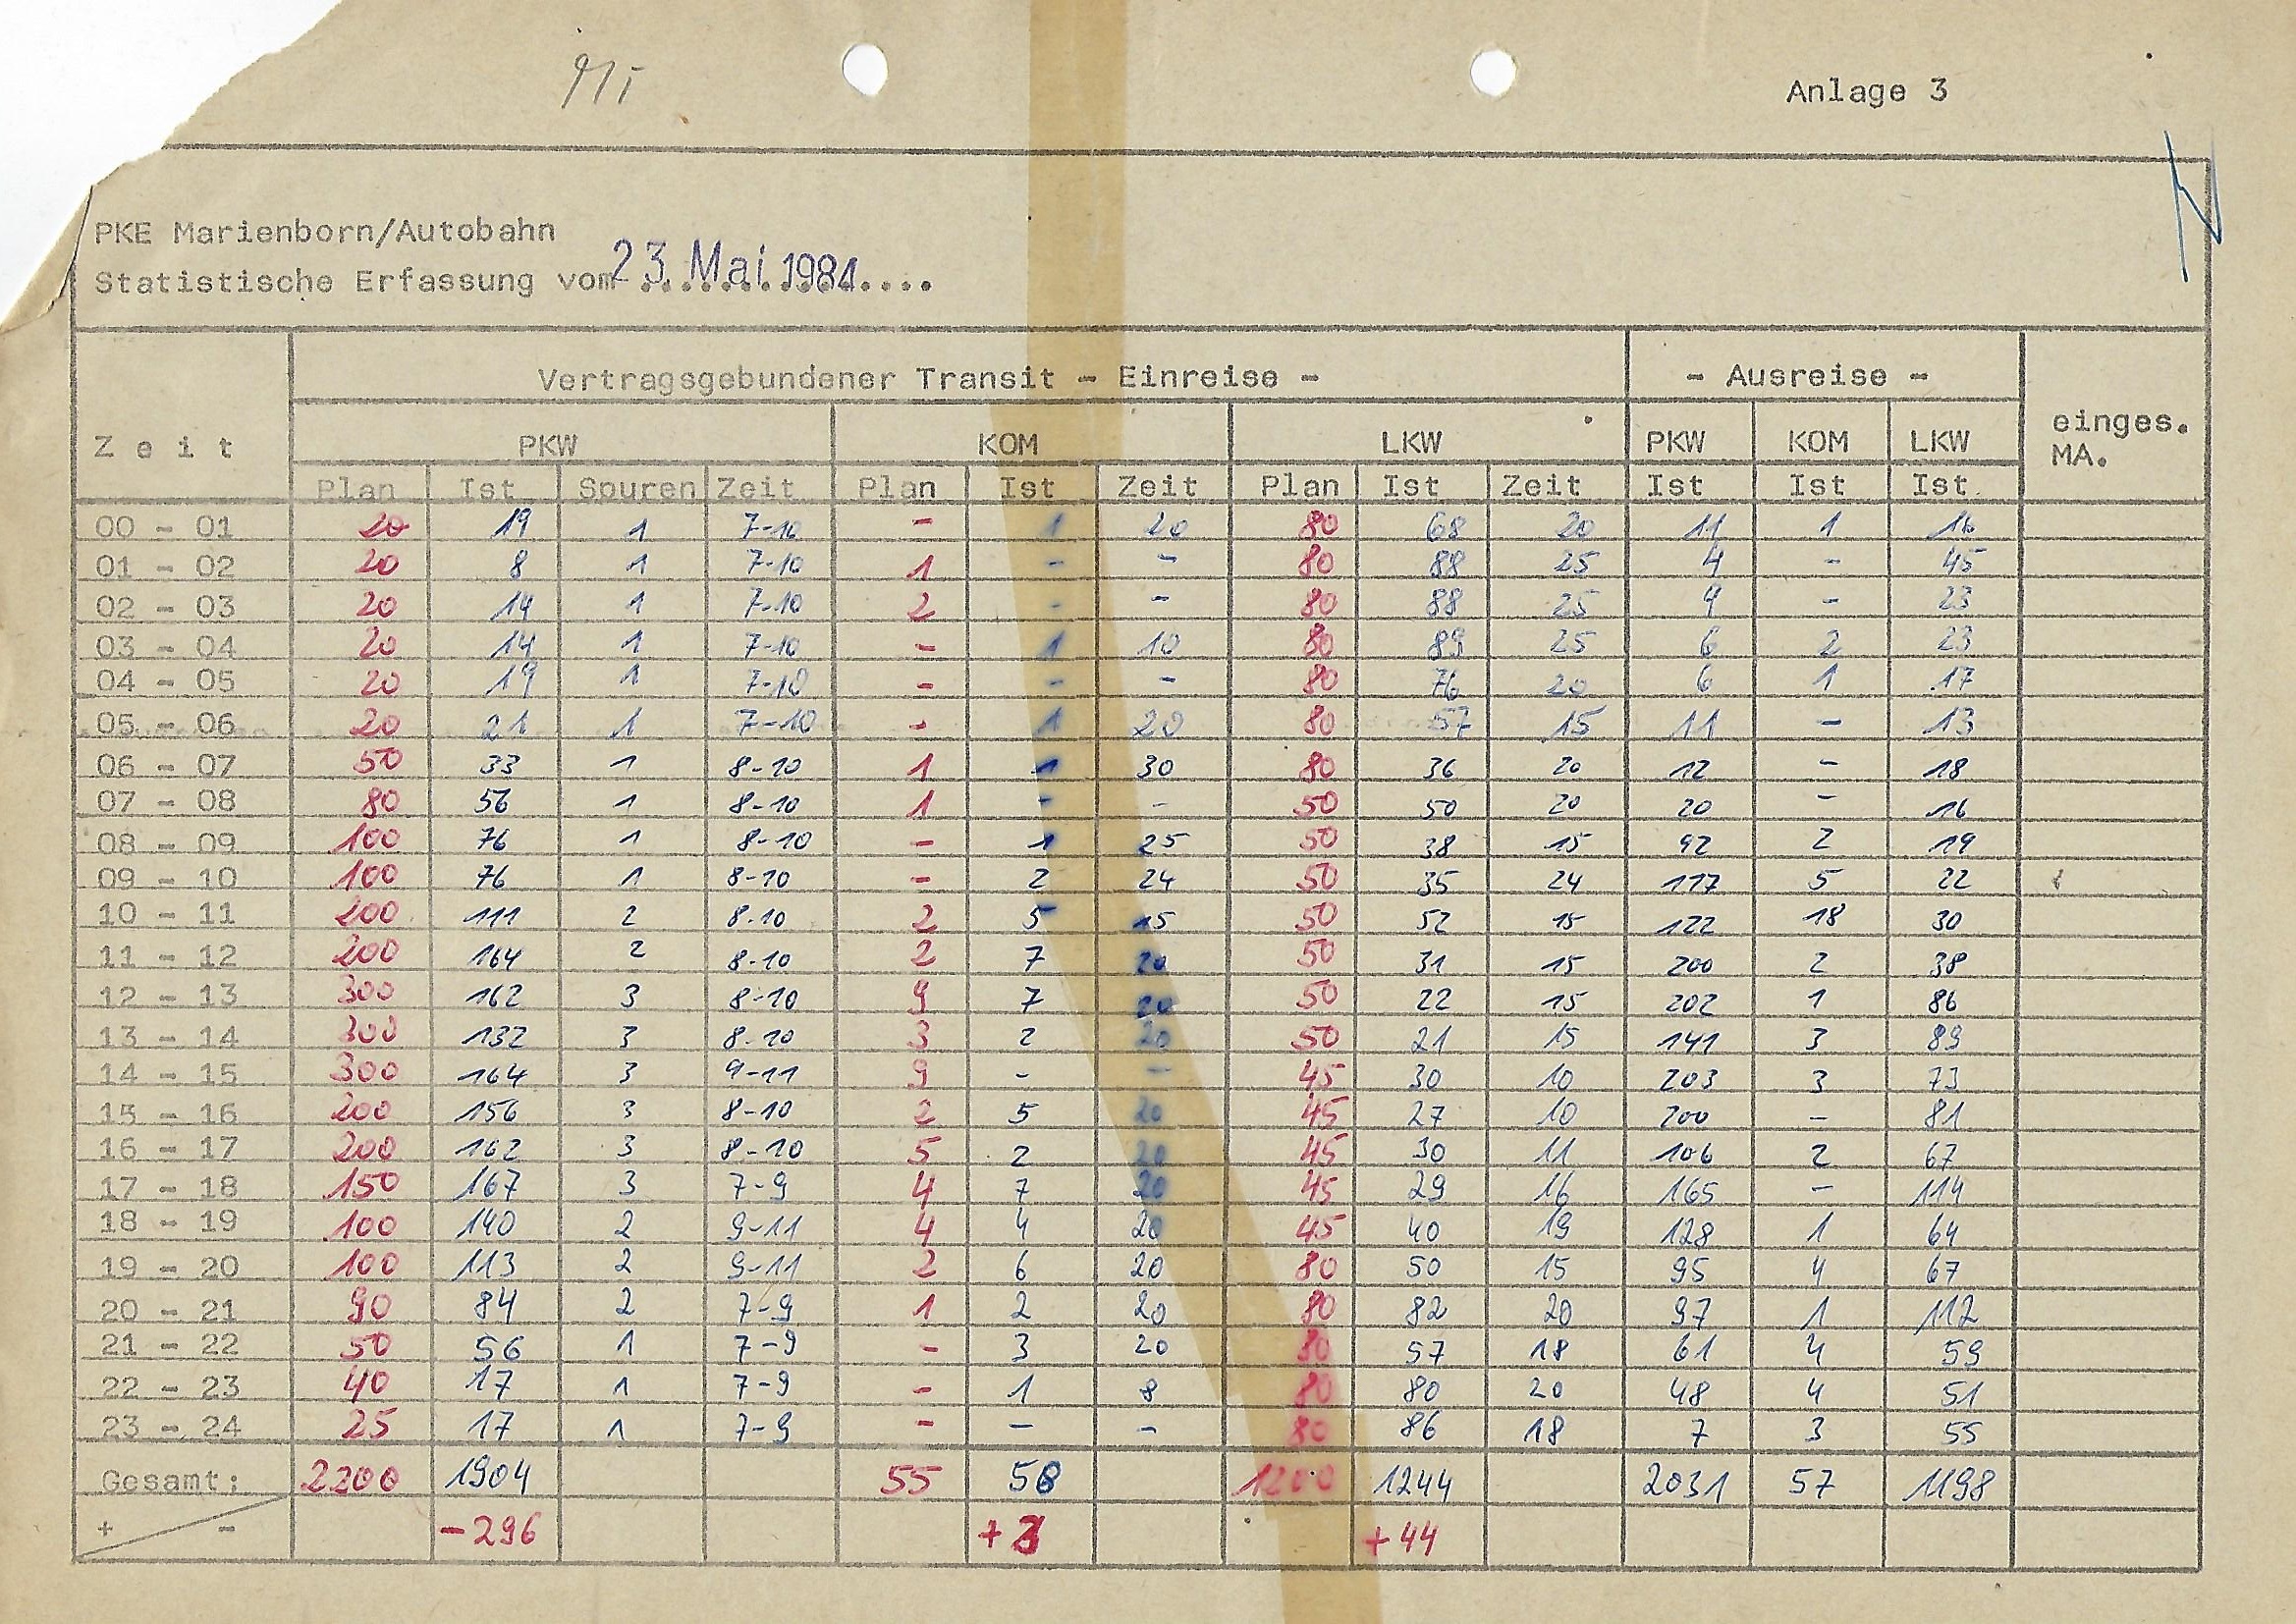 Anlage 3
PKE Marienborn/Autobahn
Statistische Erfassung vom 23. Mai 1984....
Vertragsgebundener Transit - Einreise - - Ausreise -
Zeit PKW KOM LKW PKW KOM LKW einges. MA.
Plan Ist Spuren Zeit Plan Ist Zeit Plan Ist Zeit Ist Ist Ist
00 - 01 20 19 1 7-10 - 1 20 80 68 20 11 1 16
01 - 02 20 8 1 7-10 1 - - 80 88 25 4 - 45
02 - 03 20 14 1 7-10 2 - - 80 88 25 9 - 23
03 - 04 20 14 1 7-10 - 1 10 80 89 25 6 2 23
04 - 05 20 19 1 7-10 - - - 80 76 20 6 1 17
05 - 06 20 21 1 7-10 - 1 20 80 57 15 11 - 13
06 - 07 50 33 1 8-10 1 1 30 80 36 20 12 - 18
07 - 08 80 56 1 8-10 1 - - 50 50 20 20 - 16
08 - 09 100 76 1 8-10 - 1 25 50 38 15 92 2 19
09 - 10 100 76 1 8-10 - 2 24 50 35 24 117 5 22
10 - 11 200 111 2 8-10 2 5 15 50 52 15 122 18 30
11 - 12 200 164 2 8-10 2 7 20 50 31 15 200 2 38
12 - 13 300 162 3 8-10 9 7 20 50 22 15 202 1 86
13 - 14 300 132 3 8-10 3 2 20 50 21 15 141 3 89
14 - 15 300 164 3 9-11 9 - - 45 30 10 203 3 73
15 - 16 200 156 3 8-10 2 5 20 45 27 10 200 - 81
16 - 17 200 162 3 8-10 5 2 20 45 30 11 106 2 67
17 - 18 150 167 3 7-9 4 7 20 45 29 16 165 - 114
18 - 19 100 140 2 9-11 4 4 20 45 40 19 128 1 64
19 - 20 100 113 2 9-11 2 6 20 80 50 15 95 4 67
20 - 21 90 84 2 7-9 1 2 20 80 82 20 97 1 112
21 - 22 50 56 1 7-9 - 3 20 80 57 18 61 4 59
22 - 23 40 17 1 7-9 - 1 8 80 80 20 48 4 51
23 - 24 25 17 1 7-9 - - - 80 86 18 7 3 55
Gesamt: 2200 1904 55 58 1200 1244 2031 57 1198
+ - -296 +3 +44